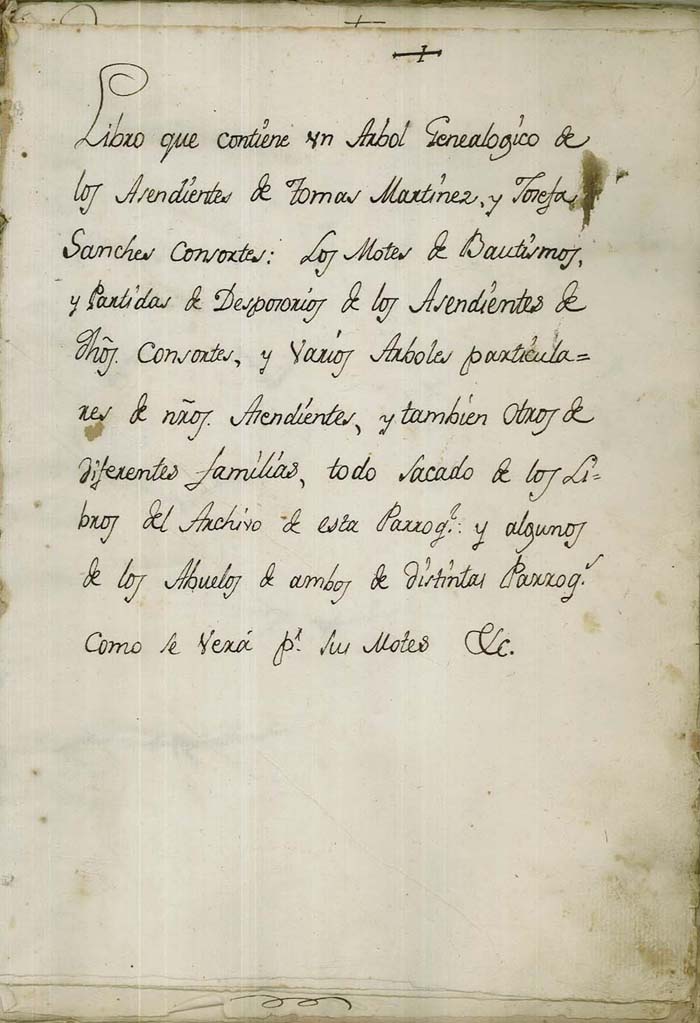 Libro que contiene vn Arbol Genealogico de
los Asendientes de Tomas Martinez, y Josefa
Sanches Consortes: Los Motes de Bautismos,
y Partidas de Desposorios de los Asendientes de
dhos. Consortes, y Varios Arboles particula=
res de nros. Asendientes, y tambien Otros de
diferentes familias, todo sacado de los Li=
bros del Archivo de esta Parroq.ª: y algunos
de los Abuelos de ambos de distintas Parroq.s
Como se Verá p.r sus Motes &c.